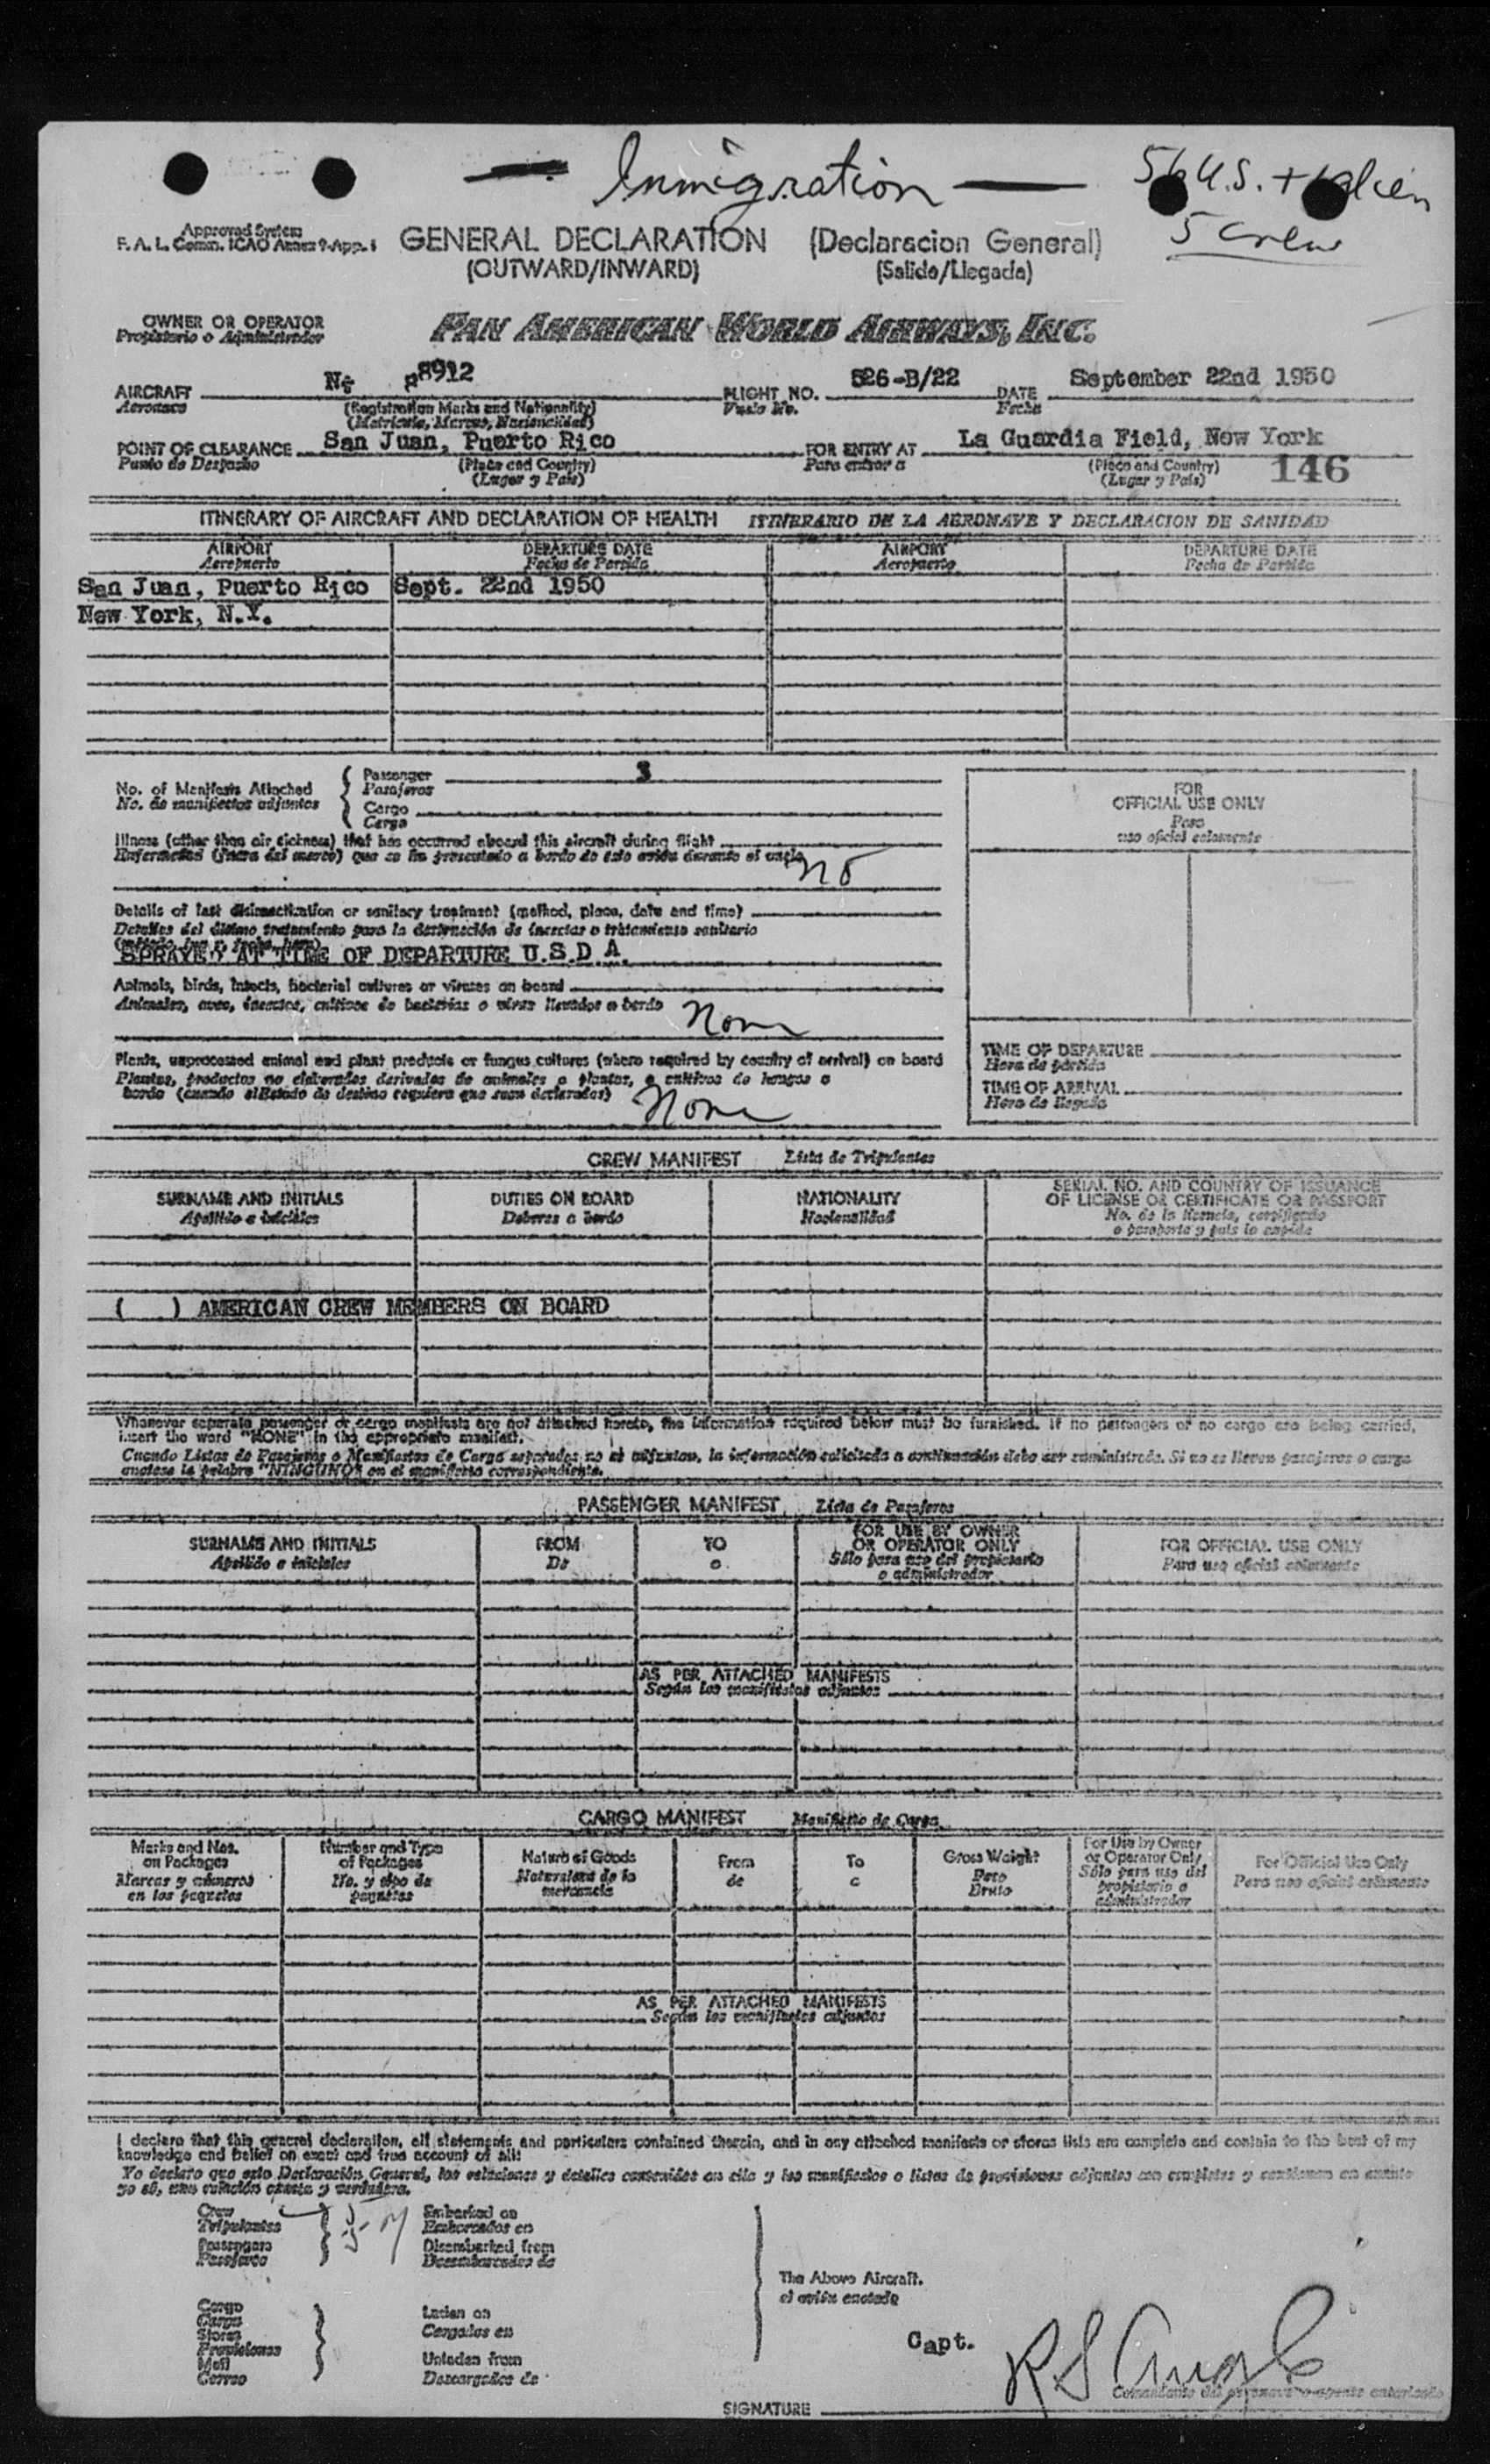 Inmigration
56 U.S. + 1 alien
5 crew
Approved System
F. A. L. Comm. ICAO Annex 9-App. 1
GENERAL DECLARATION (Declaracion General)
(OUTWARD/INWARD) (Salida/Llegada)
OWNER OR OPERATOR PAN AMERICAN WORLD AIRWAYS, INC.
Propietario o Administrador
AIRCRAFT N: 88912 FLIGHT NO. 526-B/22 DATE September 22nd 1950
Aeronave (Registration Marks and Nationality) Vuelo No. Fecha
(Matricula, Marcas, Nacionalidad)
POINT OF CLEARANCE San Juan, Puerto Rico FOR ENTRY AT La Guardia Field, New York
Punto de Despacho (Place and Country) Para entrar a (Place and Country) 146
(Lugar y País) (Lugar y País)
ITINERARY OF AIRCRAFT AND DECLARATION OF HEALTH ITINERARIO DE LA AERONAVE Y DECLARACION DE SANIDAD
AIRPORT DEPARTURE DATE AIRPORT DEPARTURE DATE
Aeropuerto Fecha de Partida Aeropuerto Fecha de Partida
San Juan, Puerto Rico Sept. 22nd 1950
New York, N.Y.
No. of Manifests Attached Passenger 3
No. de manifiestos adjuntos Pasajeros
Cargo
Carga
FOR
OFFICIAL USE ONLY
Para
uso oficial solamente
Illness (other than air sickness) that has occurred aboard this aircraft during flight
Enfermedad (fuera del mareo) que se ha presentado a bordo de este avión durante el vuelo
no
Details of last disinsectization or sanitary treatment (method, place, date and time)
Detalles del último tratamiento para la destrucción de insectos o tratamiento sanitario
SPRAYED AT TIME OF DEPARTURE U.S.D.A.
Animals, birds, insects, bacterial cultures or viruses on board
Animales, aves, insectos, cultivos de bacterias o virus llevados a bordo None
Plants, unprocessed animal and plant products or fungus cultures (where required by country of arrival) on board
Plantas, productos no elaborados derivados de animales o plantas, o cultivos de hongos a
bordo (cuando el Estado de destino requiera que sean declarados) None
TIME OF DEPARTURE
Hora de partida
TIME OF ARRIVAL
Hora de llegada
CREW MANIFEST Lista de Tripulantes
SURNAME AND INITIALS DUTIES ON BOARD NATIONALITY SERIAL NO. AND COUNTRY OF ISSUANCE
OF LICENSE OR CERTIFICATE OR PASSPORT
Apellido e iniciales Deberes a bordo Nacionalidad No. de la licencia, certificado
o pasaporte y país lo expide
( ) AMERICAN CREW MEMBERS ON BOARD
Whenever separate passenger or cargo manifests are not attached hereto, the information required below must be furnished. If no passengers or no cargo are being carried,
insert the word "NONE" in the appropriate manifest.
Cuando Listas de Pasajeros o Manifiestos de Carga separados no se adjuntan, la información solicitada a continuación debe ser suministrada. Si no se llevan pasajeros o carga
anotese la palabra "NINGUNO" en el manifiesto correspondiente.
PASSENGER MANIFEST Lista de Pasajeros
SURNAME AND INITIALS FROM TO FOR USE BY OWNER
OR OPERATOR ONLY FOR OFFICIAL USE ONLY
Apellido e iniciales De a Sólo para uso del propietario
o administrador Para uso oficial solamente
AS PER ATTACHED MANIFESTS
Según los manifiestos adjuntos
CARGO MANIFEST Manifiesto de Carga
Marks and Nos.
on Packages
Marcas y números
en los paquetes
Number and Type
of Packages
No. y tipo de
paquetes
Nature of Goods
Naturaleza de la
mercancía
From
de
To
a
Gross Weight
Peso
Bruto
For Use by Owner
or Operator Only
Sólo para uso del
propietario o
administrador
For Official Use Only
Para uso oficial solamente
AS PER ATTACHED MANIFESTS
Según los manifiestos adjuntos
I declare that this general declaration, all statements and particulars contained therein, and in any attached manifests or stores lists are complete and contain to the best of my
knowledge and belief an exact and true account of all:
Yo declaro que esta Declaración General, las relaciones y detalles contenidos en ella y los manifiestos o listas de provisiones adjuntos son completos y contienen en cuanto
yo sé, una relación exacta y verdadera.
Crew
Tripulantes
Passengers
Pasajeros
57
Embarked on
Embarcados en
Disembarked from
Desembarcados de
The Above Aircraft.
el avión anotado
Cargo
Carga
Stores
Provisiones
Mail
Correo
Laden on
Cargados en
Unladen from
Descargados de
Capt.
SIGNATURE
Comandante del aeronave o agente autorizado